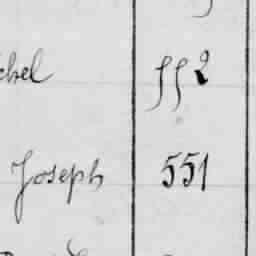 chel 552
Joseph 551